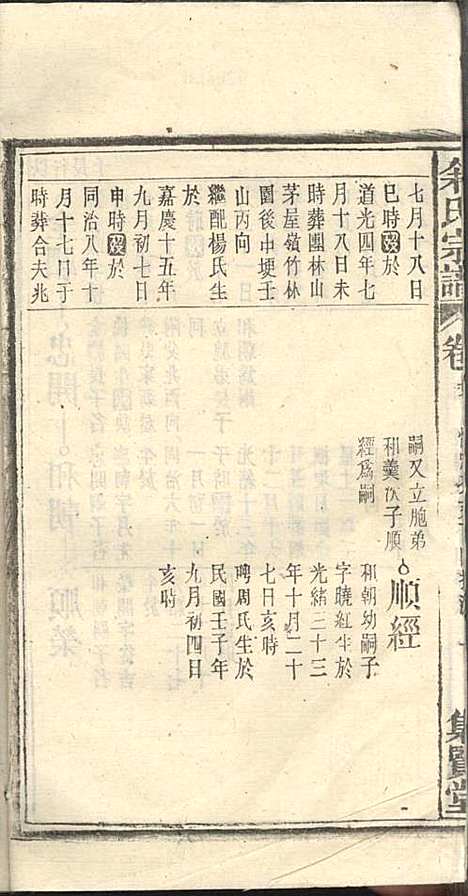 余氏宗譜
卷
集賢堂
七月十八日
巳時歿於
道光四年七
月十八日未
時葬團林山
茅屋嶺竹林
園後中埂壬
山丙向
繼配楊氏生
於
嘉慶十五年
九月初七日
申時歿於
同治八年十
月十七日于
時葬合夫兆
嗣又立胞弟
和羹次子順
經爲嗣
順經
和朝幼嗣子
字曉紅生於
光緒二十三
年十月二十
七日亥時
聘周氏生於
民國壬子年
九月初四日
亥時